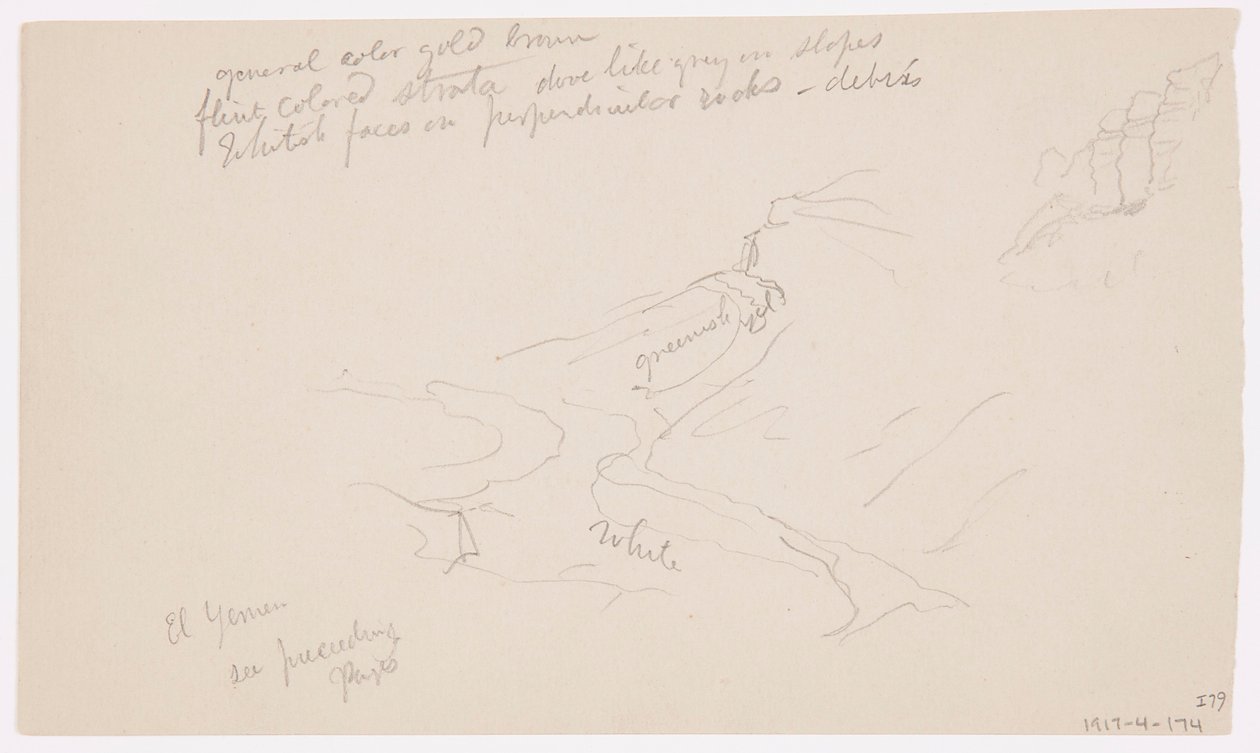 general color gold brown
flint colored strata dove like grey on slopes
Whitish faces on perpendicular rocks - debris
greenish yel
White
El Yemen
see preceeding
pages
I79
1917-4-174